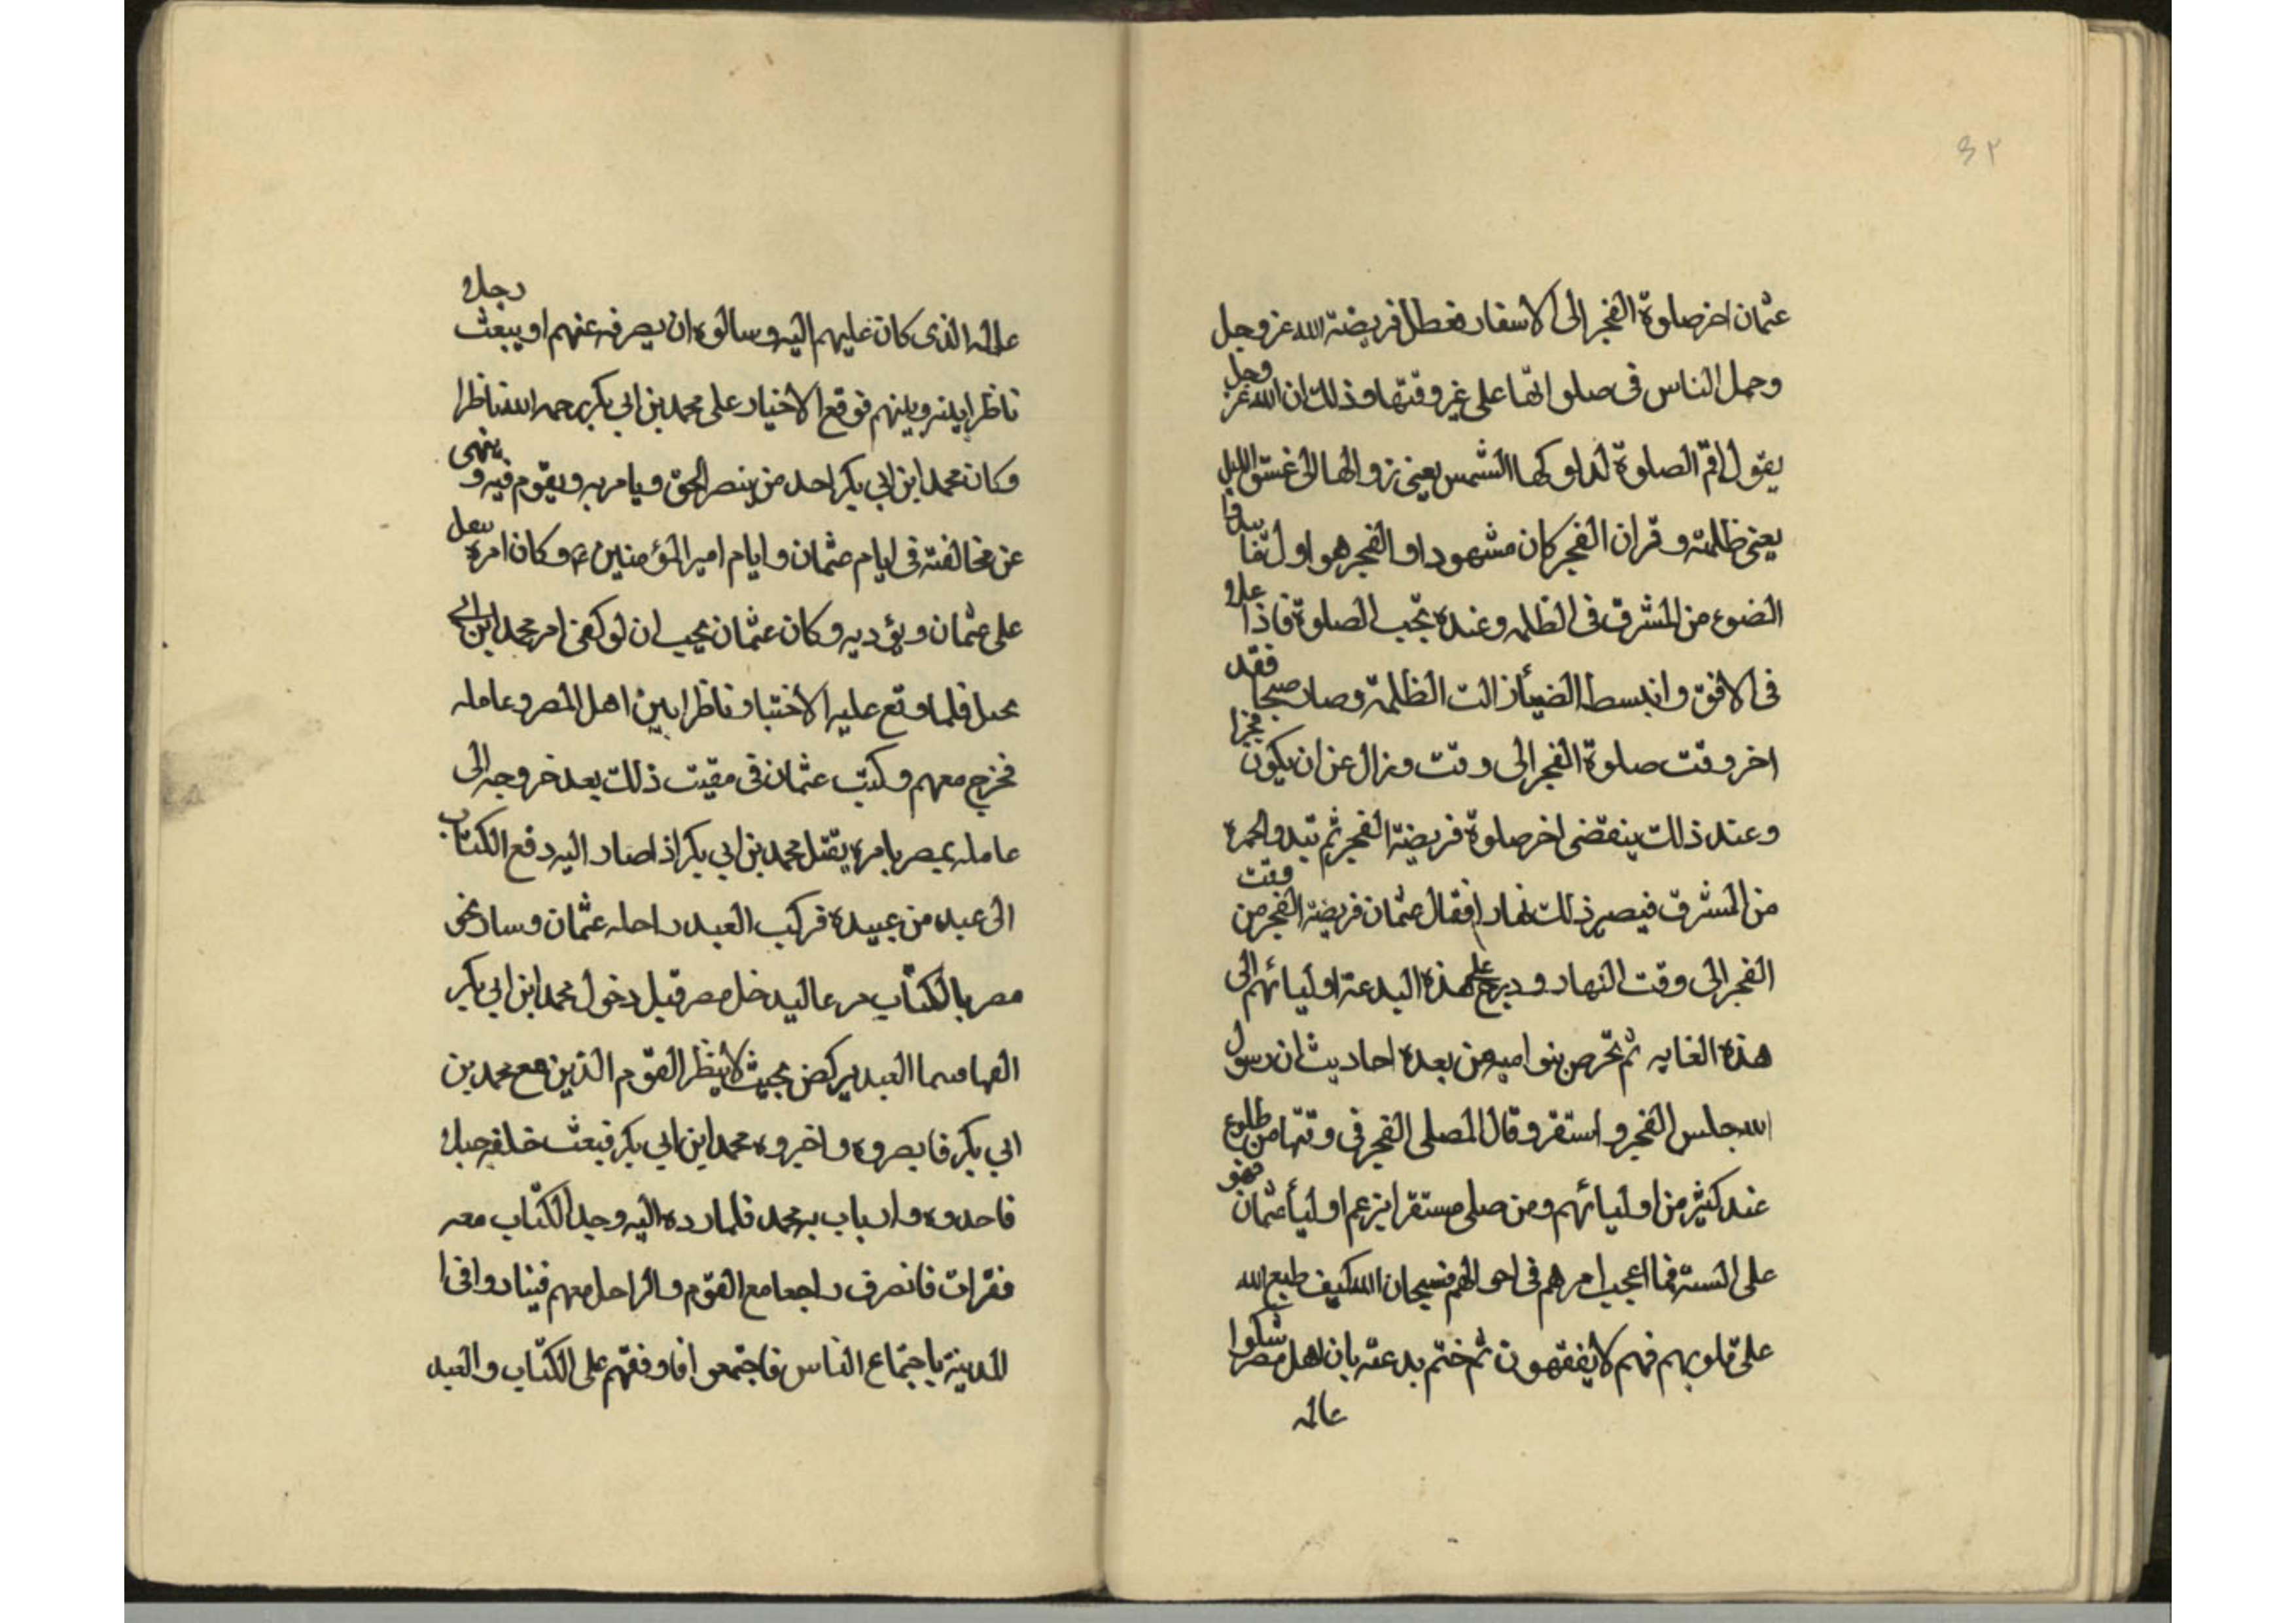 ٤٢
عثمان اخر صلوة الفجر الى الاسفار فعطل فريضة الله عز وجل
وحمل الناس فى صلواتها على غير وقتها وذلك ان الله عز وجل
يقول اقم الصلوة لدلوكها الشمس يعنى زوالها الى غسق الليل
يعنى ظلمته و قران الفجر كان مشهودا و الفجر هو اول
الضوء من المشرق فى الظلمه وعنده تجب الصلوة فاذا علا
فى الافق وانبسط الضياء زالت الظلمة وصار صبحا فقد
اخر وقت صلوة الفجر الى وقت وزال عن ان يكون فجرا
وعند ذلك ينقضى اخر صلوة فريضة الفجر ثم تبدو الحمرة
من المشرق فيصير ذلك نهارا فنقل عثمان فريضة الفجر من وقت
الفجر الى وقت النهار و درج على هذه البدعة اوليائهم الى
هذه الغايه ثم تخرص بنو اميه من بعده احاديث ان رسول
الله جلس الفجر و استقر وقال المصلى الفجر فى وقتها من طلوع
عند كثير من اوليائهم ومن صلى مستقرا بزعم اوليأ عثمان فهو
على السنة فما اعجب امرهم فى احوالهم فسبحان الله كيف طبع الله
على قلوبهم فهم لا يفقهون ثم ختم بدعته بان اهل مصر شكوا
عامله
عامله الذى كان عليهم اليه و سالوه ان يصرفه عنهم او يبعث رجلا
ناظرا بينه وبينهم فوقع الاختيار على محمد بن ابى بكر رحمه الله ناظرا
وكان محمد ابن ابى بكر احد من ينصر الحق ويامر به ويقوم فيه و ينهى
عن مخالفته فى ايام عثمان و ايام امير المؤمنين ع وكان امره
على عثمان و يؤديه وكان عثمان يحب ان لو كفى امر محمد ابن ابى
فلما وقع عليه الاختيار ناظرا بين اهل المصر و عامله
فخرج معهم وكتب عثمان فى ذلك بعد خروجه الى
عامله بمصر يامره بقتل محمد بن ابى بكر اذا صار اليه دفع الكتاب
الى عبد من عبيده فركب العبد راحله عثمان و سار نحو
مصر بالكتاب ليدخل مصر قبل دخول محمد ابن ابى بكر
اليها العبد يركض بحيث لا ينظر القوم الذين مع محمد بن
ابى بكر فابصروه و اخبروه محمد ابن ابى بكر فبعث خلفه
به محمد فلما رده اليه وجد الكتاب معه
فقرات فانصرف راجعا مع القوم و الراحل معهم
المدينة باجتماع الناس فاجتمعوا على الكتاب و العبد